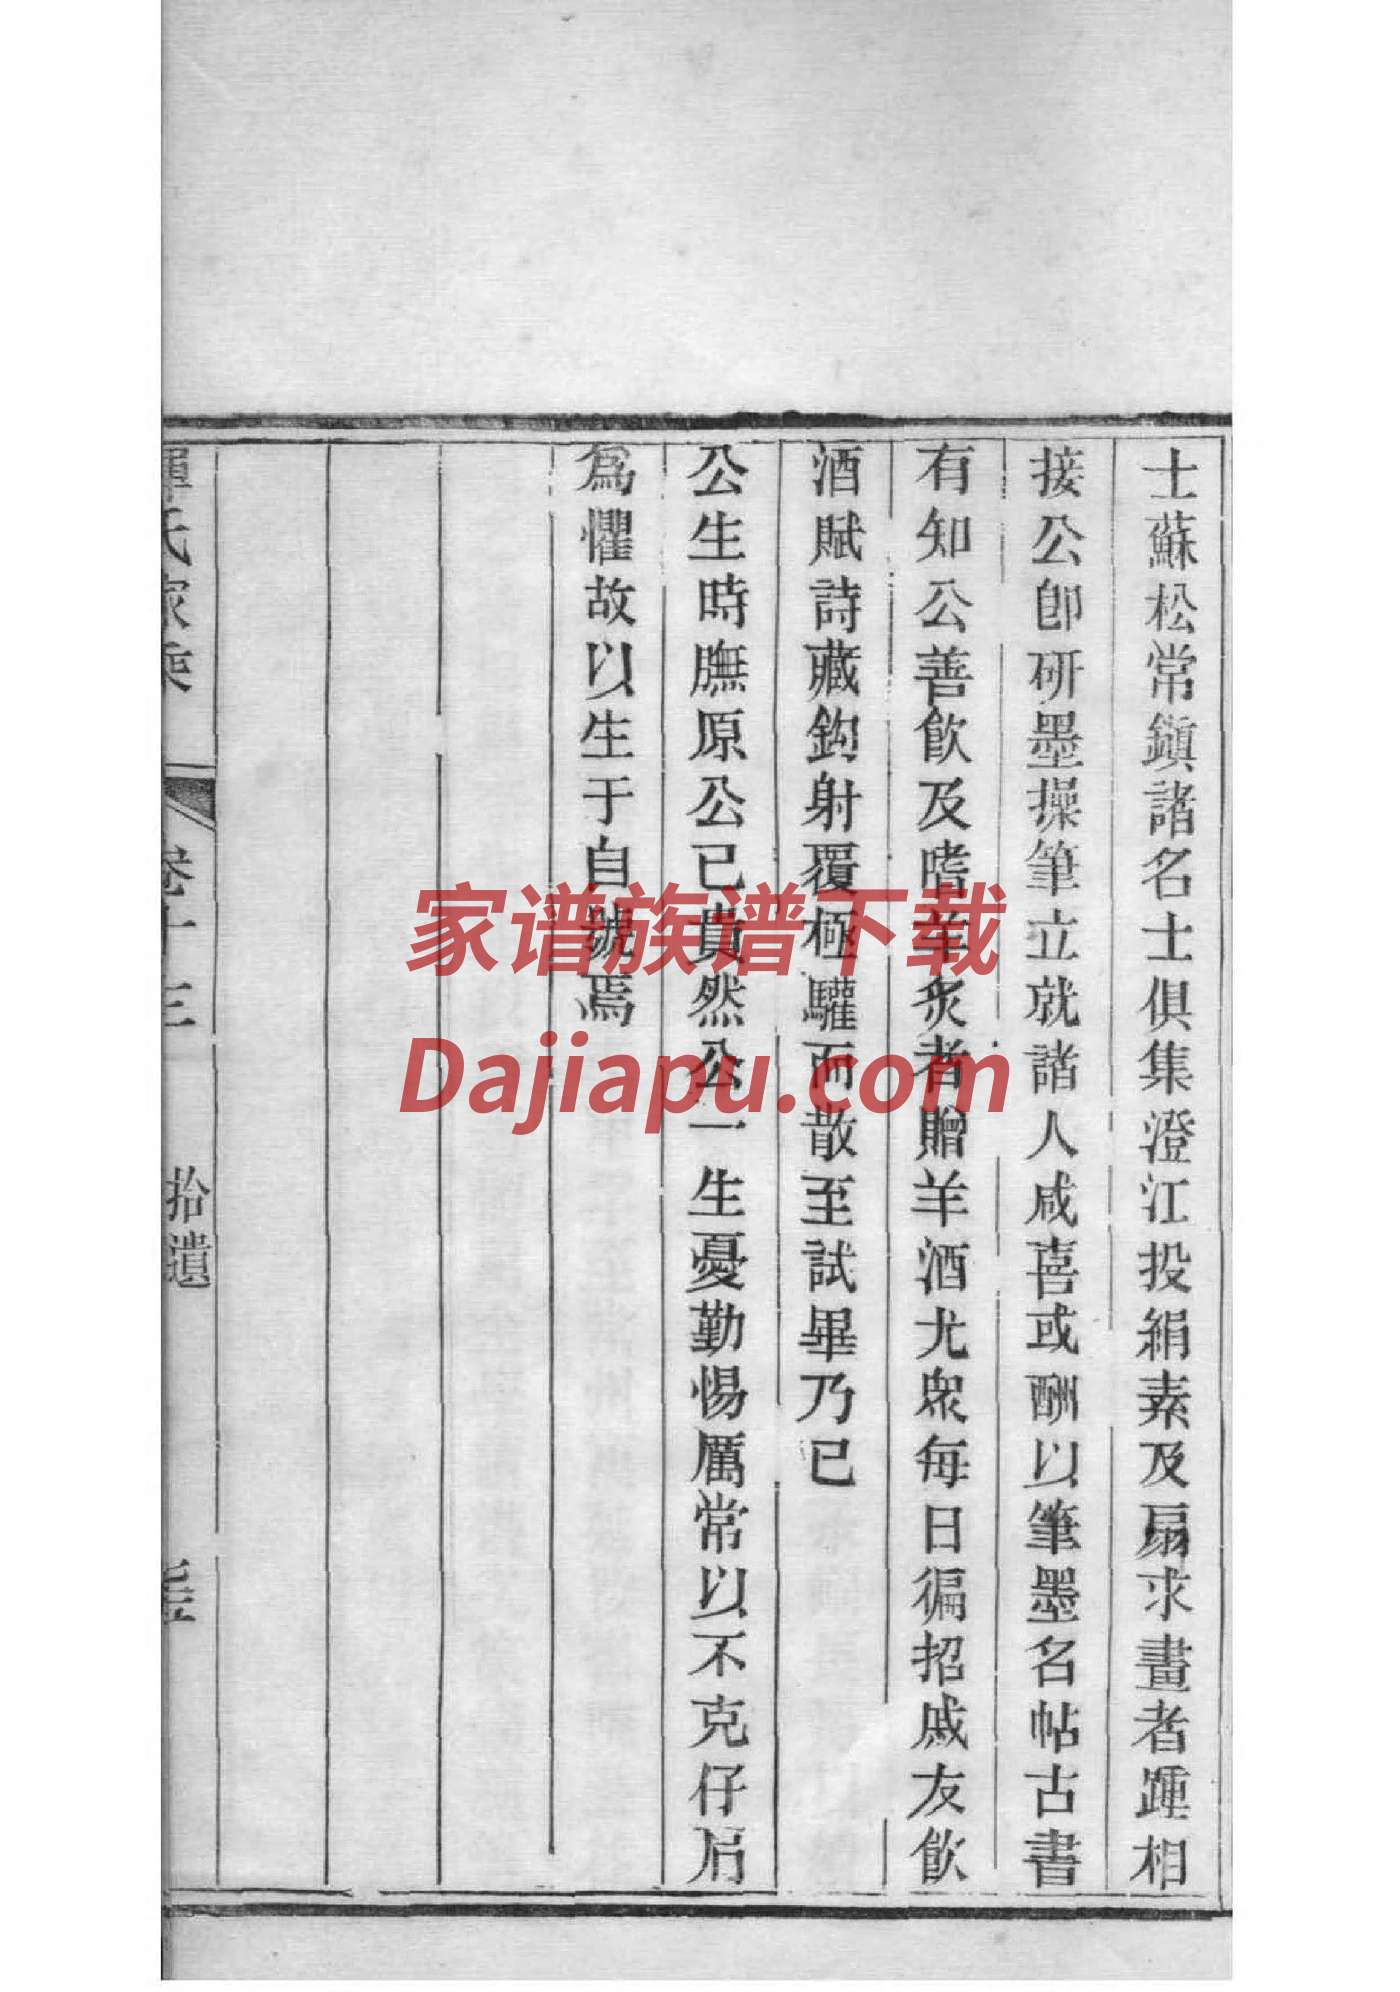 士蘇松常鎭諸名士俱集澄江投絹素及扇求畫者踵相
接公卽研墨操筆立就諸人咸喜或酬以筆墨名帖古書
有知公善飮及嗜羊炙者贈羊酒尤衆每日徧招戚友飮
酒賦詩藏鈎射覆極驩而散至試畢乃已
公生時膴原公已貴然公一生憂勤惕厲常以不克仔肩
爲懼故以生于自號焉
惲氏家乘
卷十三
拾遺
家谱族谱下载
Dajiapu.com